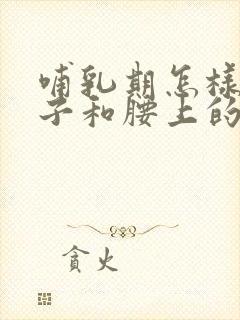 哺乳期怎样
子和腰上的
贪火